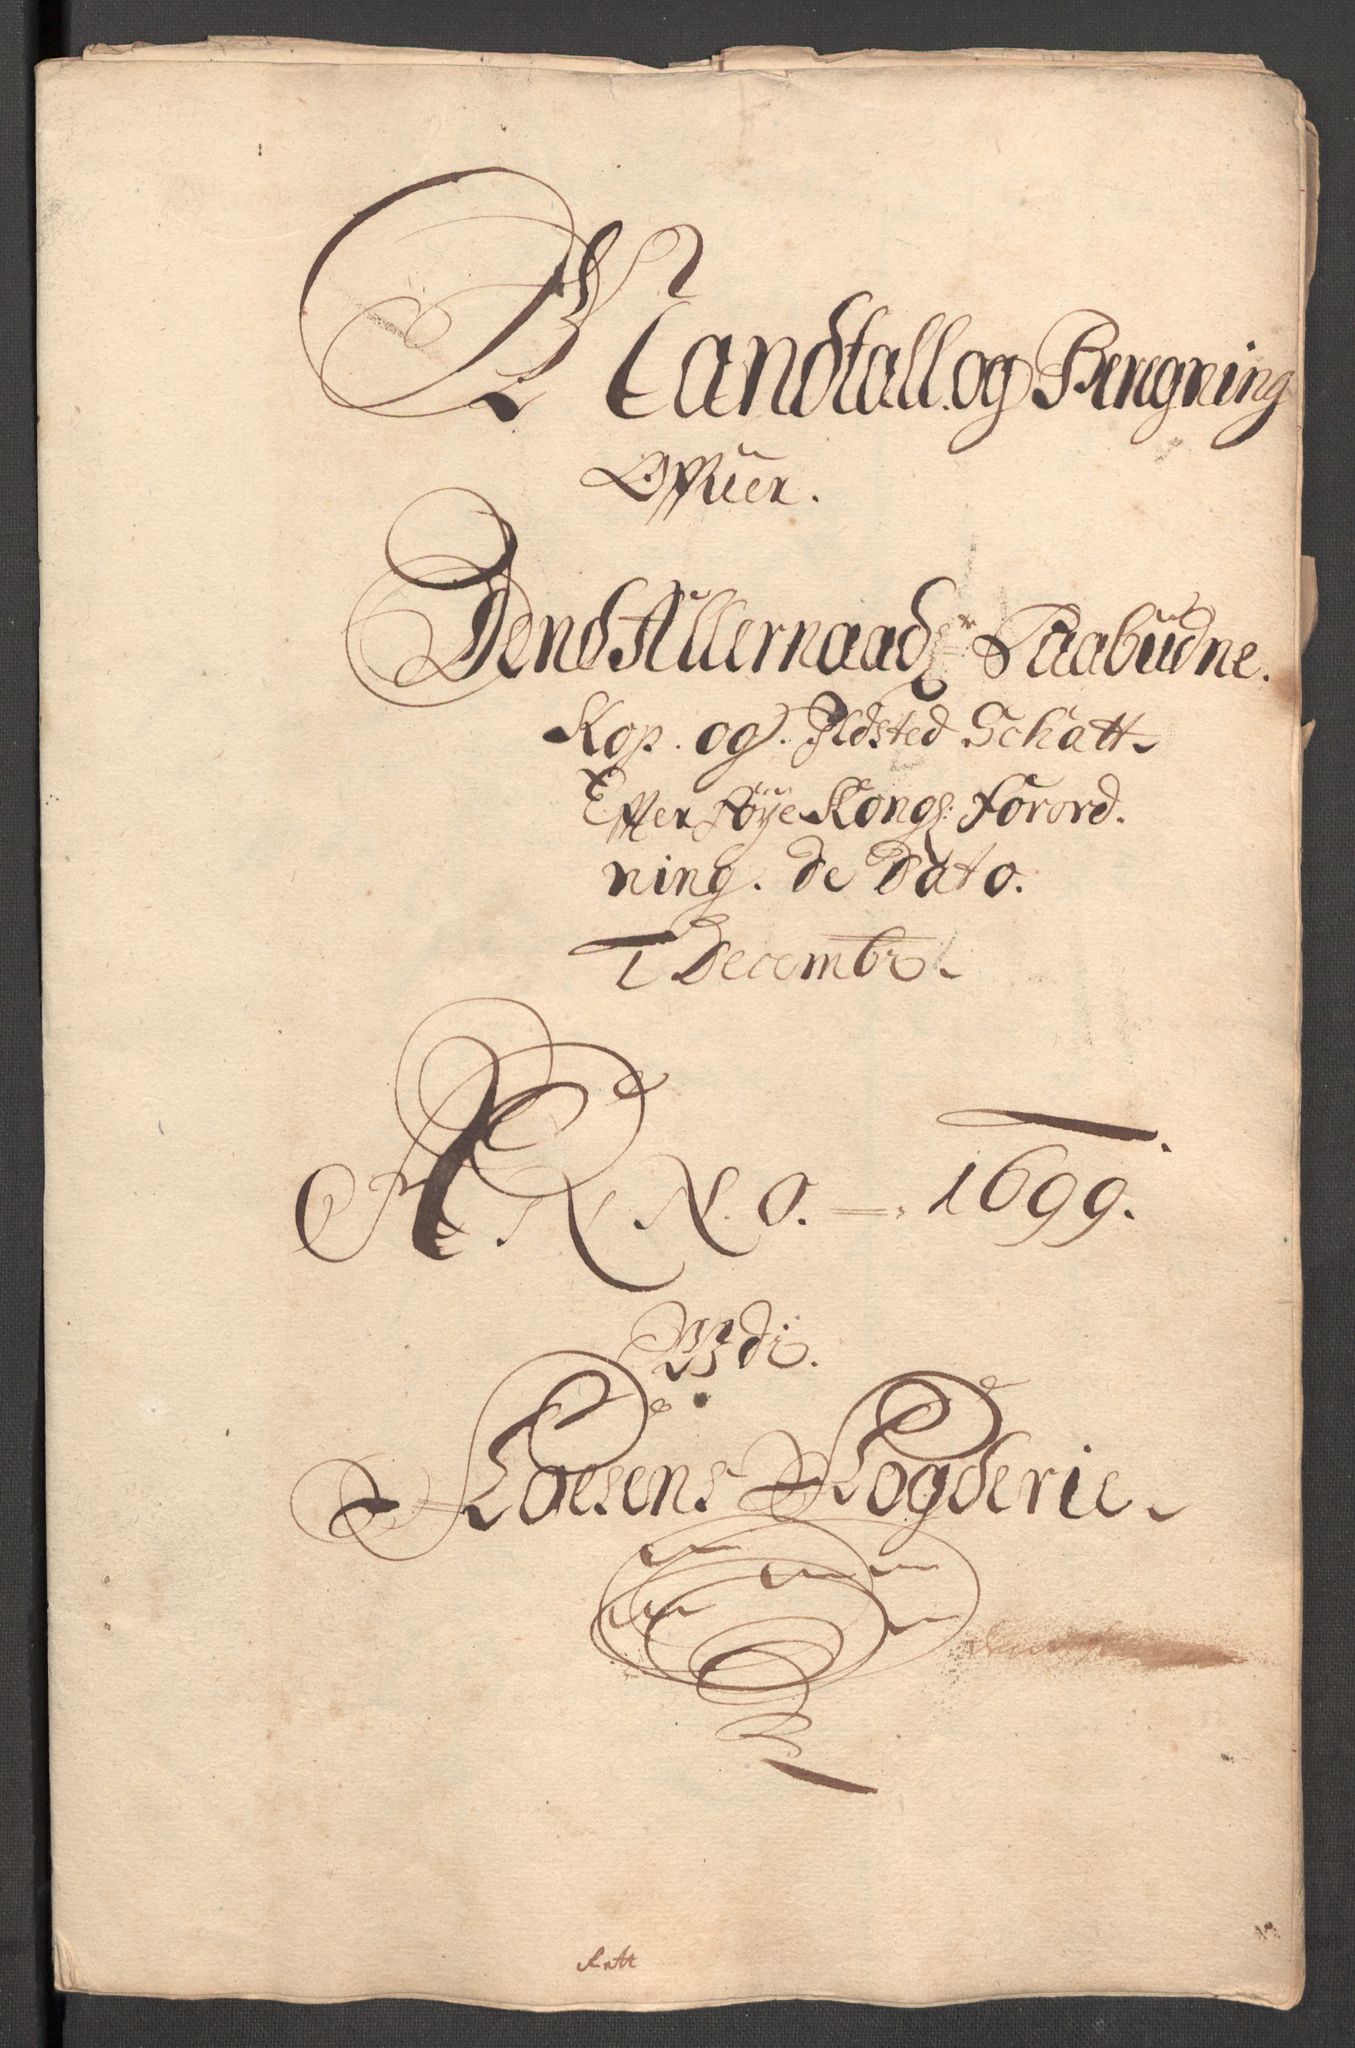 Mandtall og Beregning
Offuer.
Dend Allernaadr Paabudne.
Kop. og. Ildsted Schatt
Effter høye Kongl: Forord.
ning. de Dato.
1 Decembr.
ANNO. 1699.
Udi.
Foesens Fogderie